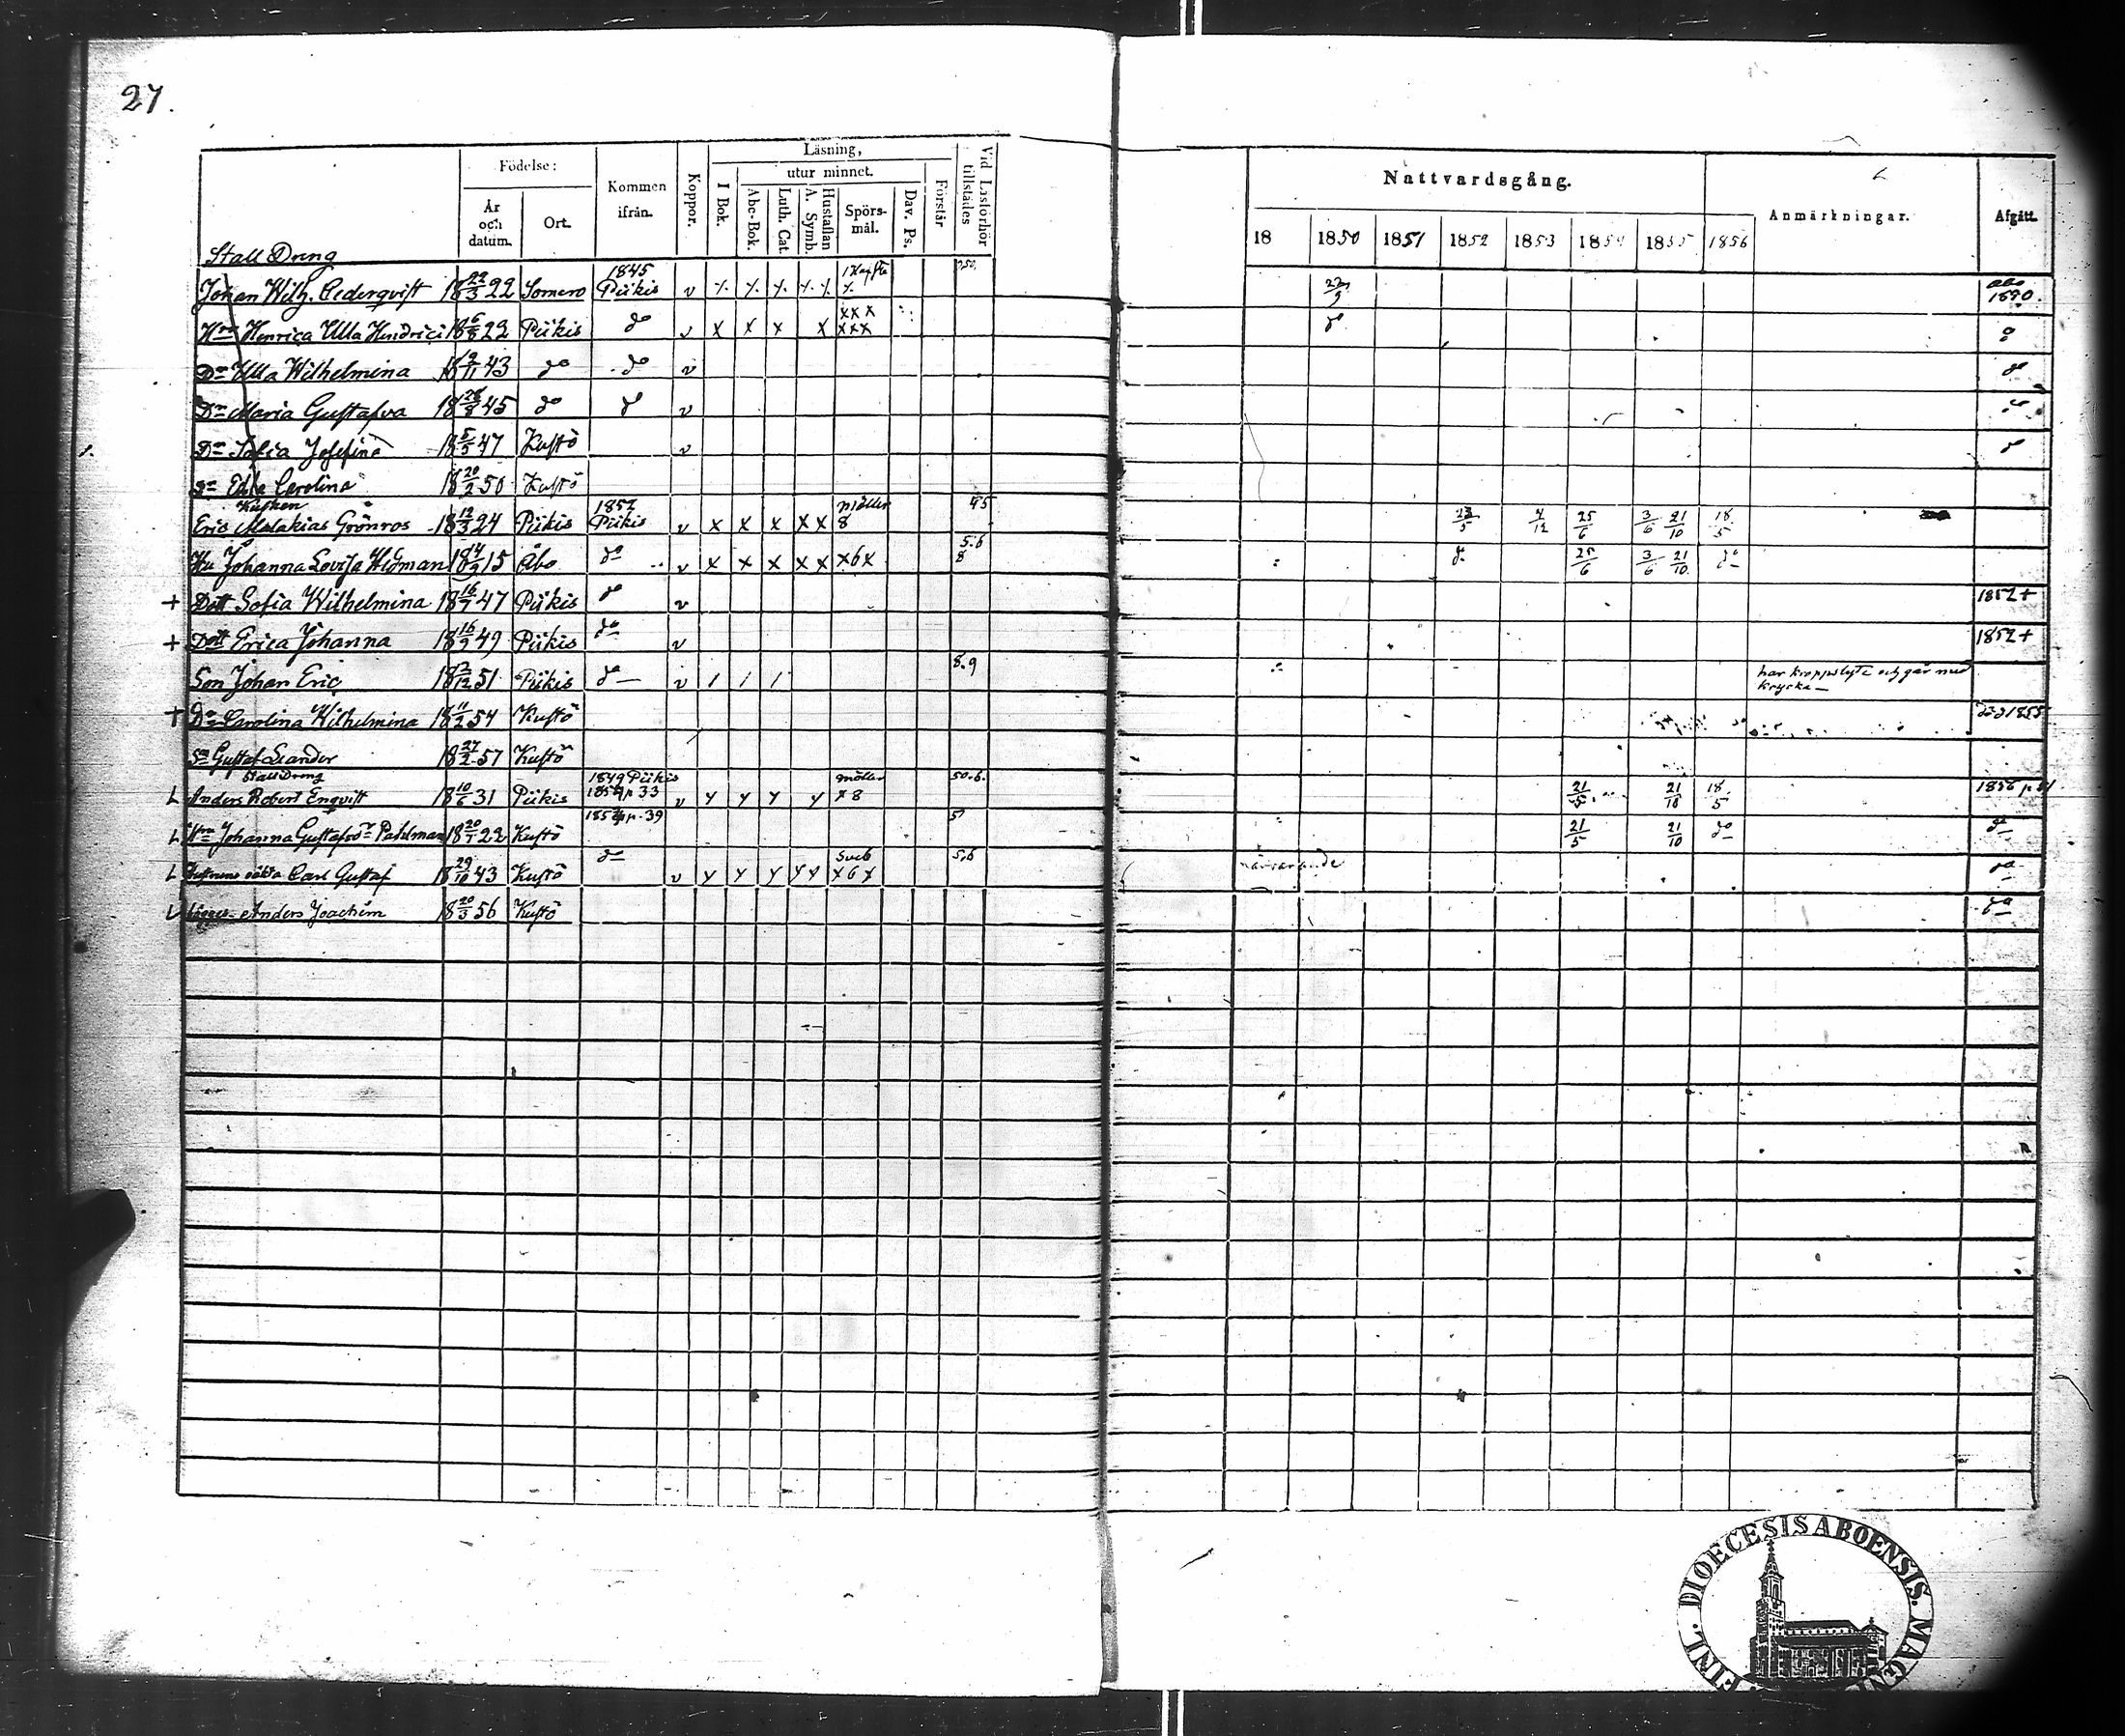 27.
Födelse: Kommen ifrån. Koppor. Läsning, Vid Läsförhör tillstädes
År och datum. Ort. I Bok. utur minnet. Förstår
Abc-Bok. Luth. Cat. A. Symb. Hustaflan Spörsmål. Dav. Ps.
Nattvardsgång. Anmärkningar. Afgått.
18 1850 1851 1852 1853 1854 1855 1856
Stall Dreng
Johan Wilh. Cederqvist 18 22/3 22 Somero 1845 Piikis v
Henrica Ulla 18 6/8 22 Piikis do v x x x x xxx xxx do
Dr Ulla Wilhelmina 18 9/11 43 do do v do
Dr Maria Gustafva 18 28/8 45 do do v
Dr Sofia Josefina 18 5/5 47 Kustö v do
Dr Edla Carolina 18 20/2 50 Kustö
Kusken
Eric Malakias Grönros 18 12/3 24 Piikis 1852 Piikis v x x x x x 8 45 4/12 25/6 3/6 21/10 18/5
Hu Johanna Lovisa Widman 18 4/9 15 Åbo do v x x x x x x6x 5.6 8 do 25/6 3/6 21/10 do
+ Dott Sofia Wilhelmina 18 16/7 47 Piikis do v 1852 +
+ Dott Erica Johanna 18 16/9 49 Piikis do v 1852 +
Son Johan Eric 18 2/12 51 Piikis do v / / / 8.9 har kroppslyte och går med
krycka
+ Dr Carolina Wilhelmina 18 11/2 54 Kustö död 1855
Sn Gustaf Leander 18 27/2 57 Kustö
Stall Dreng
L Anders Robert Enqvist 18 10/6 31 Piikis 1849 Piikis p 33 v 8 50.6. 21/5 21/10 18/5 1856
L Johanna 18 20/1 22 Kustö p. 39 5 21/5 21/10 do do
L Carl Gustaf 18 29/10 43 Kustö do v x6x 5.6 do
L Anders Joachim 18 20/3 56 Kustö do
FINL. DIOECESIS ABOENSIS. MAGN